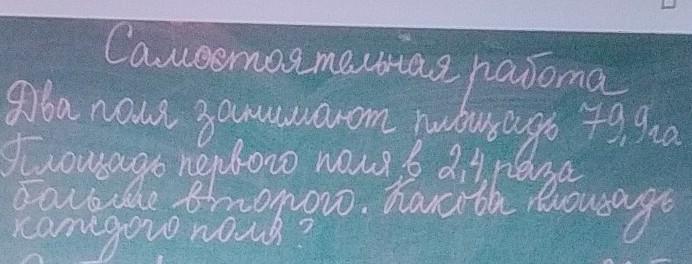 Самостоятельная работа
Два поля занимают площадь 79,9 га
Площадь первого поля в 2,4 раза
больше второго. Какова площадь
каждого поля?